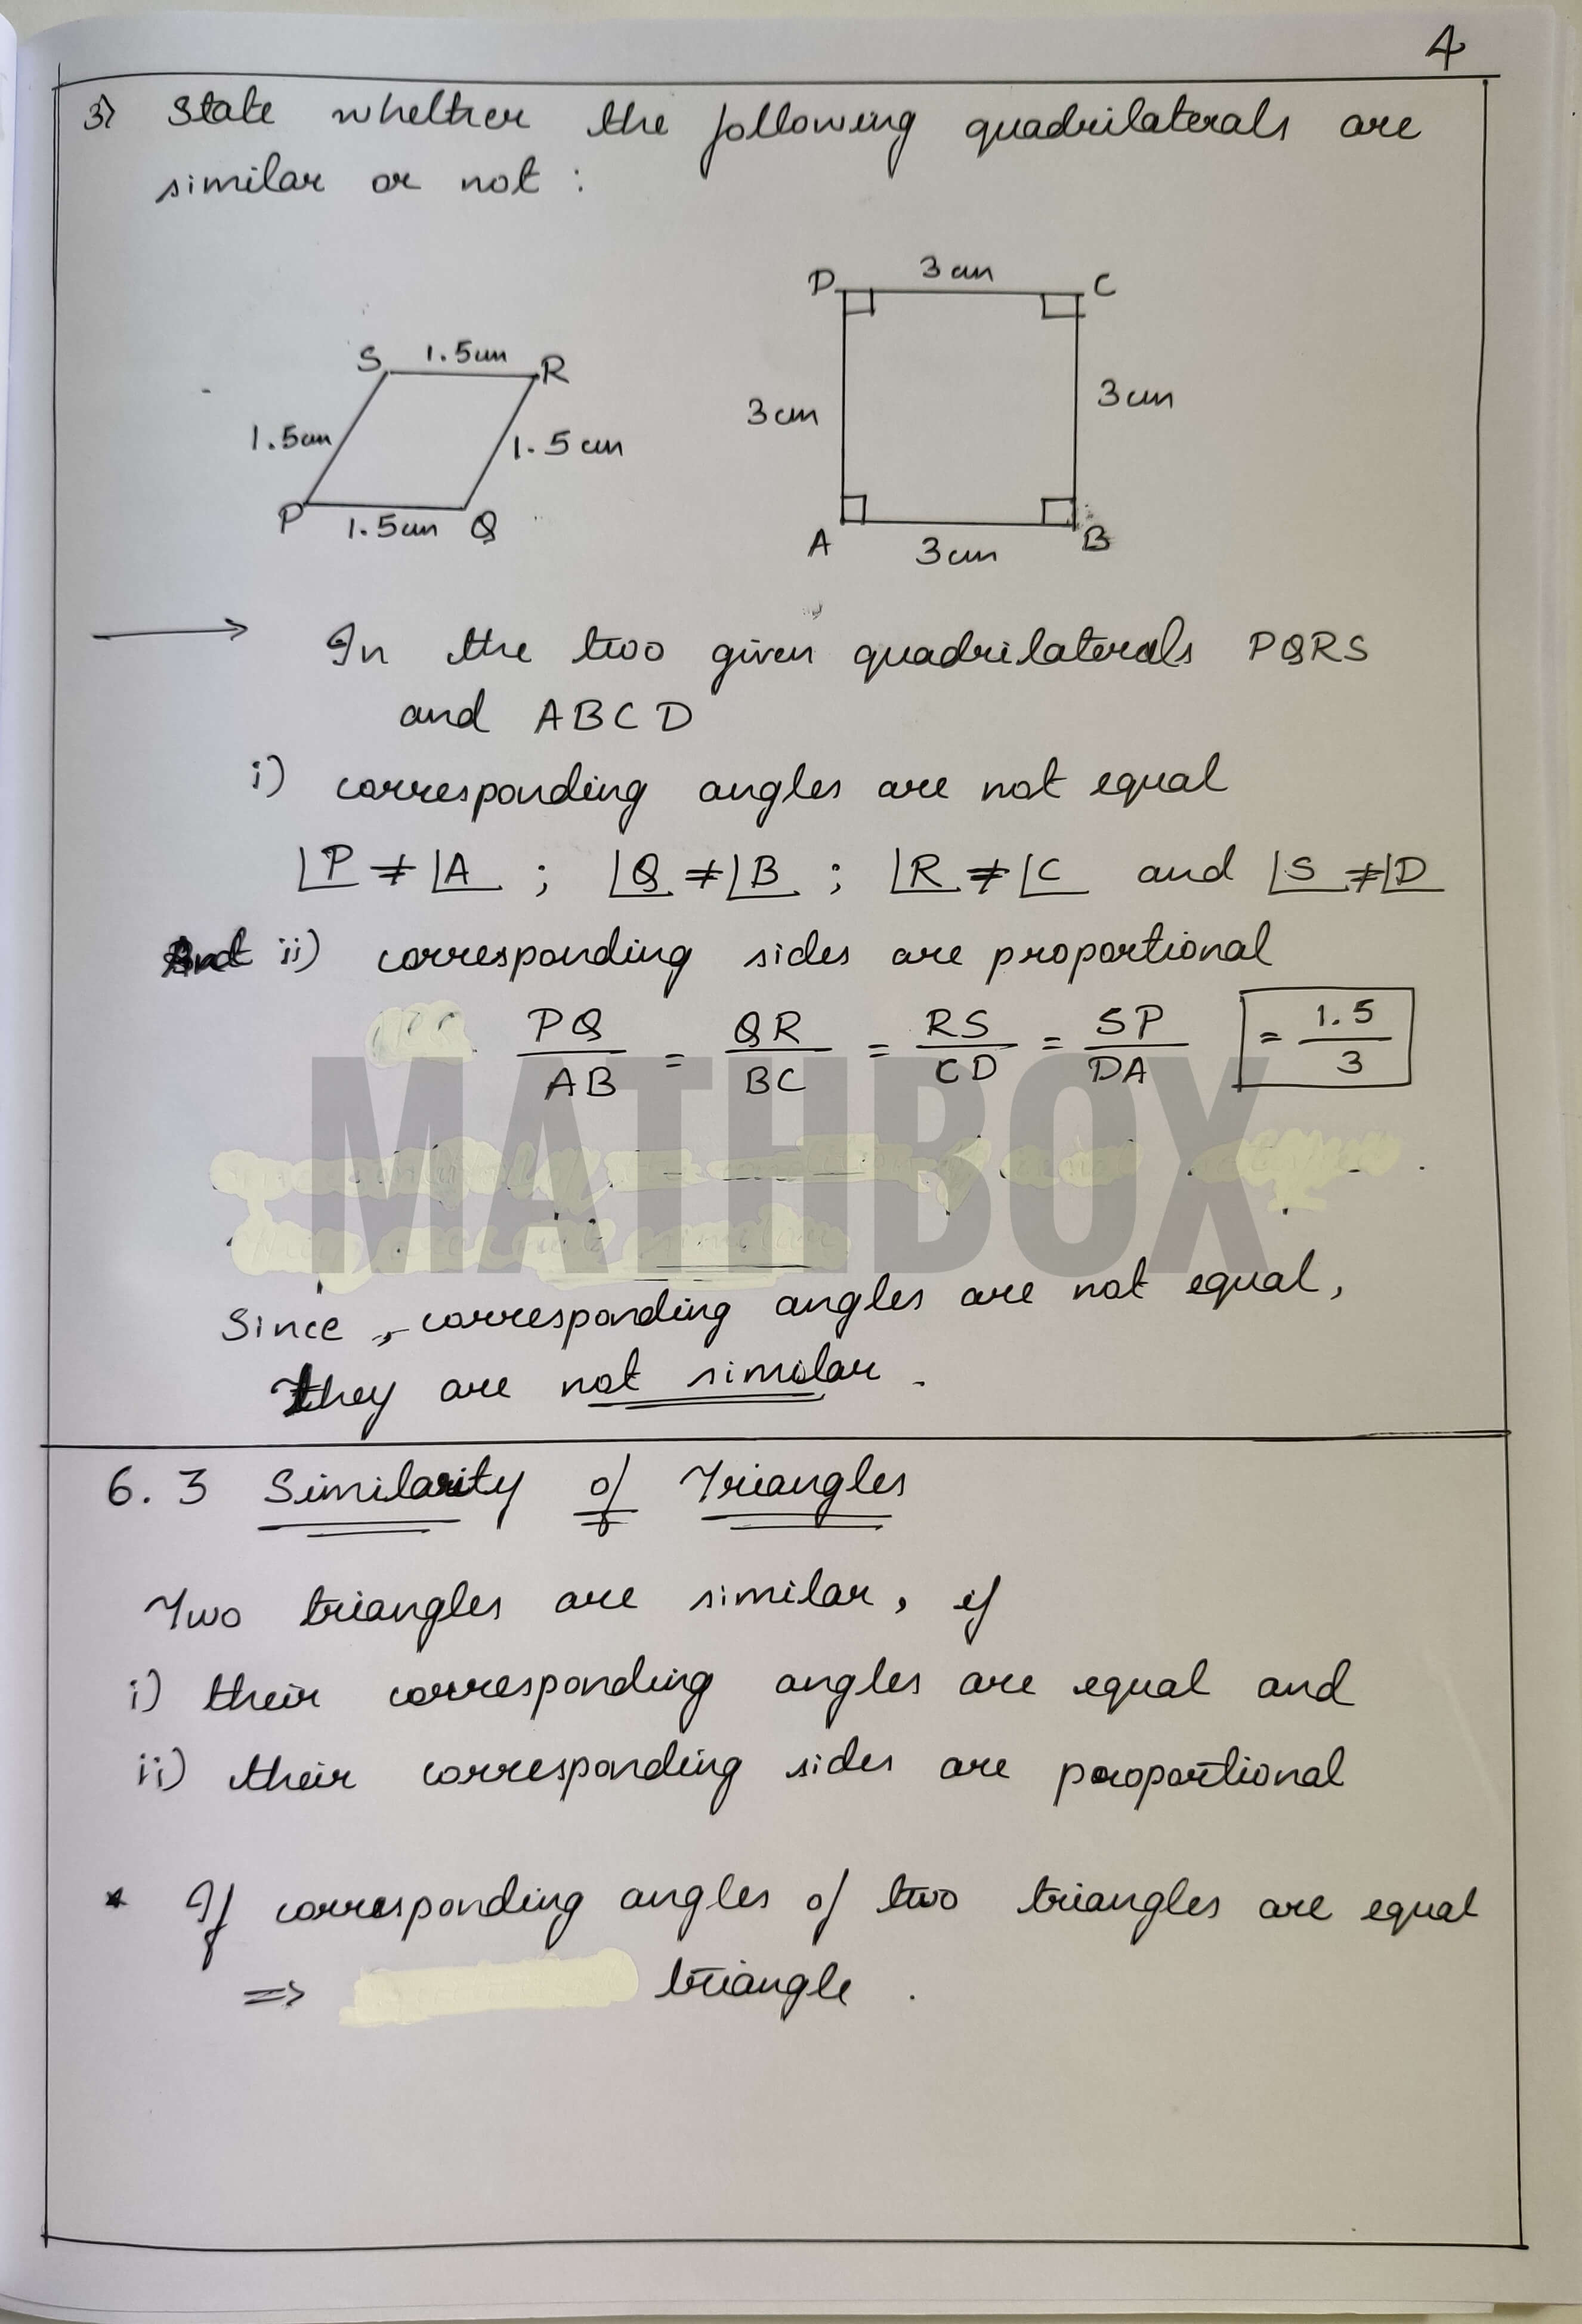 4
3) State whether the following quadrilaterals are
similar or not :
S 1.5cm R
1.5cm
1.5 cm
P 1.5cm Q
D 3 cm C
3 cm
3 cm
A 3 cm B
→ In the two given quadrilaterals PQRS
and ABCD
i) corresponding angles are not equal
∠P ≠ ∠A ; ∠Q ≠ ∠B ; ∠R ≠ ∠C and ∠S ≠ ∠D
And ii) corresponding sides are proportional
PQ/AB = QR/BC = RS/CD = SP/DA = 1.5/3
MATHBOX
Since, corresponding angles are not equal,
they are not similar.
6.3 Similarity of Triangles
Two triangles are similar, if
i) their corresponding angles are equal and
ii) their corresponding sides are proportional
* If corresponding angles of two triangles are equal
⇒ triangle .